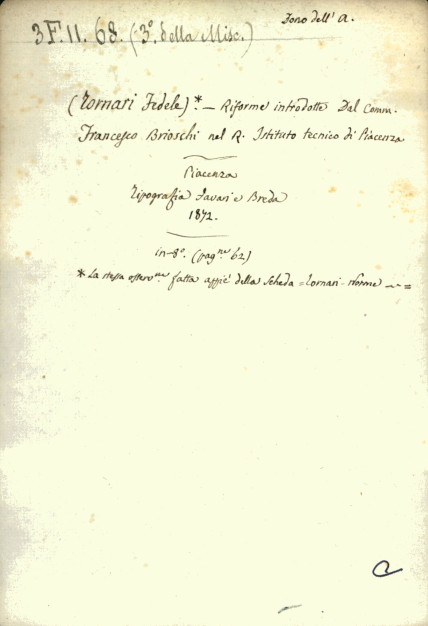 Dono dell' A.
3 F. 11. 68. (3º. della Misc.)
(Tornari Fedele)* — Riforme introdotte Dal Comm.
Francesco Brioschi nel R. Istituto tecnico di Piacenza
Piacenza
Tipografia Favari e Breda
1872.
in-8º. (pag.ne 62)
* La stessa osserv.ne fatta appiè della scheda = Tornari - riforme — =